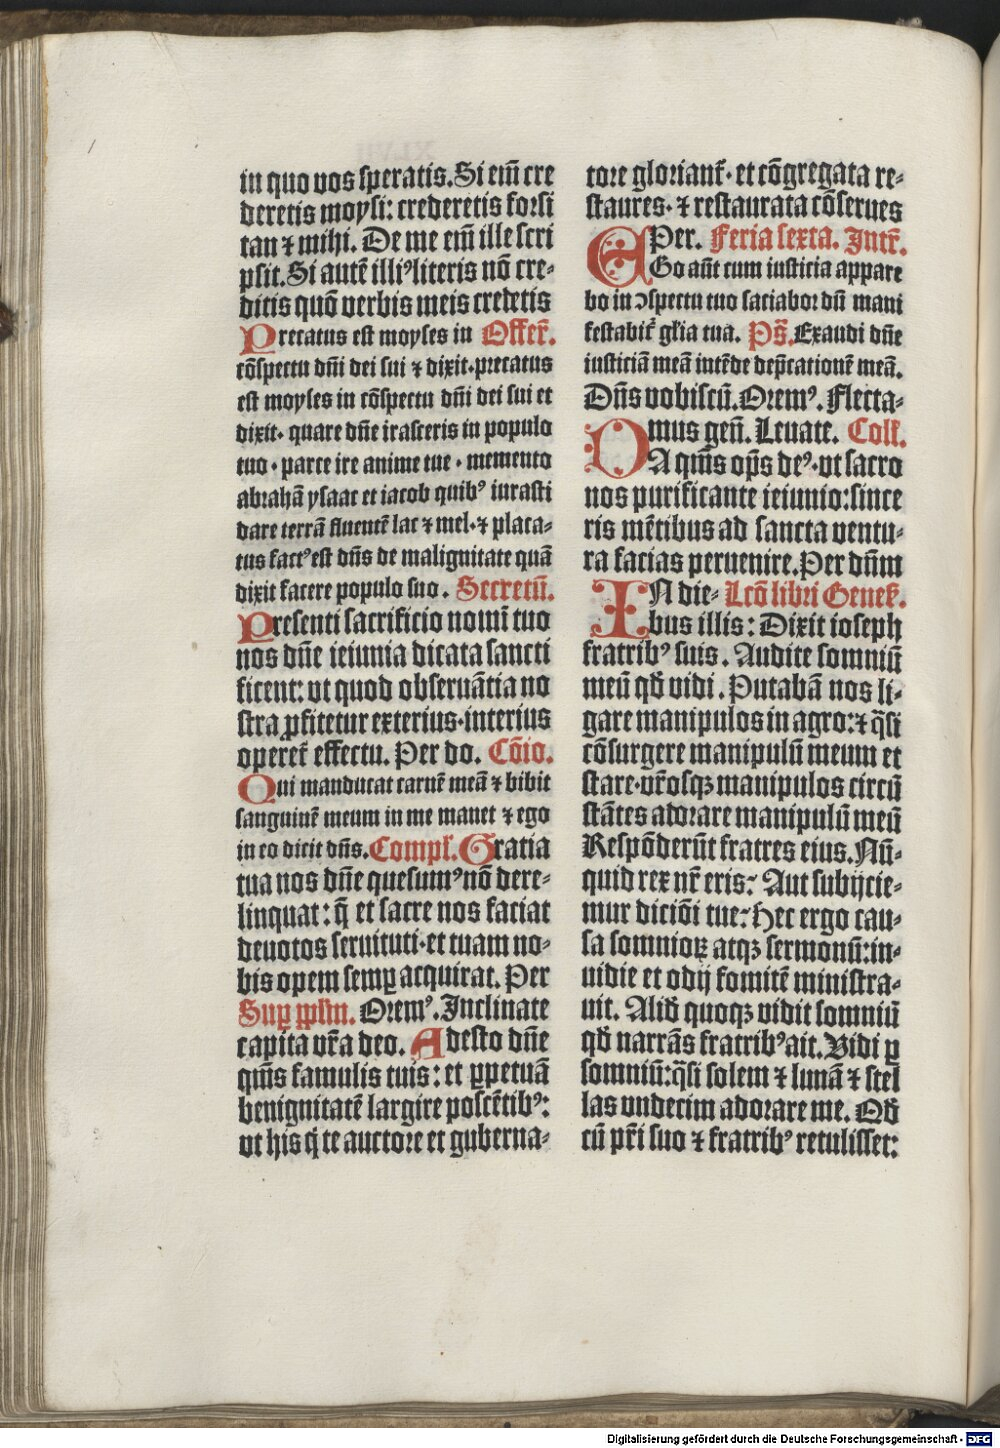 in quo vos speratis. Si em̄ cre
deretis moysi: crederetis forsi
tan ⁊ mihi. De me em̄ ille scri
psit. Si autē illiꝰ literis nō cre-
ditis quō verbis meis credetis
Precatus est moyses in Offer̄.
cōspectu dn̄i dei sui ⁊ dixit. precatus
est moyses in cōspectu dn̄i dei sui et
dixit. quare dn̄e irasceris in populo
tuo. parce ire anime tue. memento
abrahā ysaac et iacob quibꝰ iurasti
dare terrā fluentē lac ⁊ mel. ⁊ placa-
tus factꝰ est dn̄s de malignitate quā
dixit facere populo suo. Secretū.
Presenti sacrificio nomī tuo
nos dn̄e ieiunia dicata sancti
ficent: vt quod obseruātia no
stra ꝓfitetur exterius. interius
operet̄ effectu. Per do. Cōio.
Qui manducat carnē meā ⁊ bibit
sanguinē meum in me manet ⁊ ego
in eo dicit dn̄s. Compl̄. Gratia
tua nos dn̄e quesumꝰ nō dere-
linquat: q̄ et sacre nos faciat
deuotos seruituti. et tuam no-
bis opem semꝑ acquirat. Per
Suꝑ pplm̄. Oremꝰ. Inclinate
capita vr̄a deo. Adesto dn̄e
qm̄s famulis tuis: et ꝑpetuā
benignitatē largire poscētibꝰ:
vt his q̇ te auctore et guberna-
tore gloriant̄. et cōgregata re-
staures. ⁊ restaurata cōserues
Per. Feria sexta. Intr̄.
EGo aūt cum iusticia appare
bo in ↄspectu tuo saciabor dū mani
festabit̄ gl̄ia tua. Ps̄. Exaudi dn̄e
iusticiā meā intēde dep̄cationē meā.
Dn̄s vobiscū. Oremꝰ. Flecta-
mus gen̄. Leuate. Coll̄.
DA qm̄s op̄s deꝰ. vt sacro
nos purificante ieiunio: since
ris mētibus ad sancta ventu-
ra facias peruenire. Per dn̄m
IN die- Lcō libri Genes̄.
bus illis: Dixit ioseph
fratribꝰ suis. Audite somniū
meū qd̄ vidi. Putabā nos li-
gare manipulos in agro: ⁊ q̄si
cōsurgere manipulū meum et
stare. vr̄osqꝫ manipulos circū
stātes adorare manipulū meū
Respōderūt fratres eius. Nū-
quid rex nr̄ eris? Aut subijcie-
mur diciōi tue? Hec ergo cau-
sa somnioꝝ atqꝫ sermonū: in-
uidie et odij fomitē ministra-
uit. Aliḋ quoqꝫ vidit somniū
qd̄ narrās fratribꝰ ait. Vidi ꝑ
somniū: q̄si solem ⁊ lunā ⁊ stel
las vndecim adorare me. Qd̄
cū pr̄i suo ⁊ fratribꝰ retulisset:
Digitalisierung gefördert durch die Deutsche Forschungsgemeinschaft - DFG